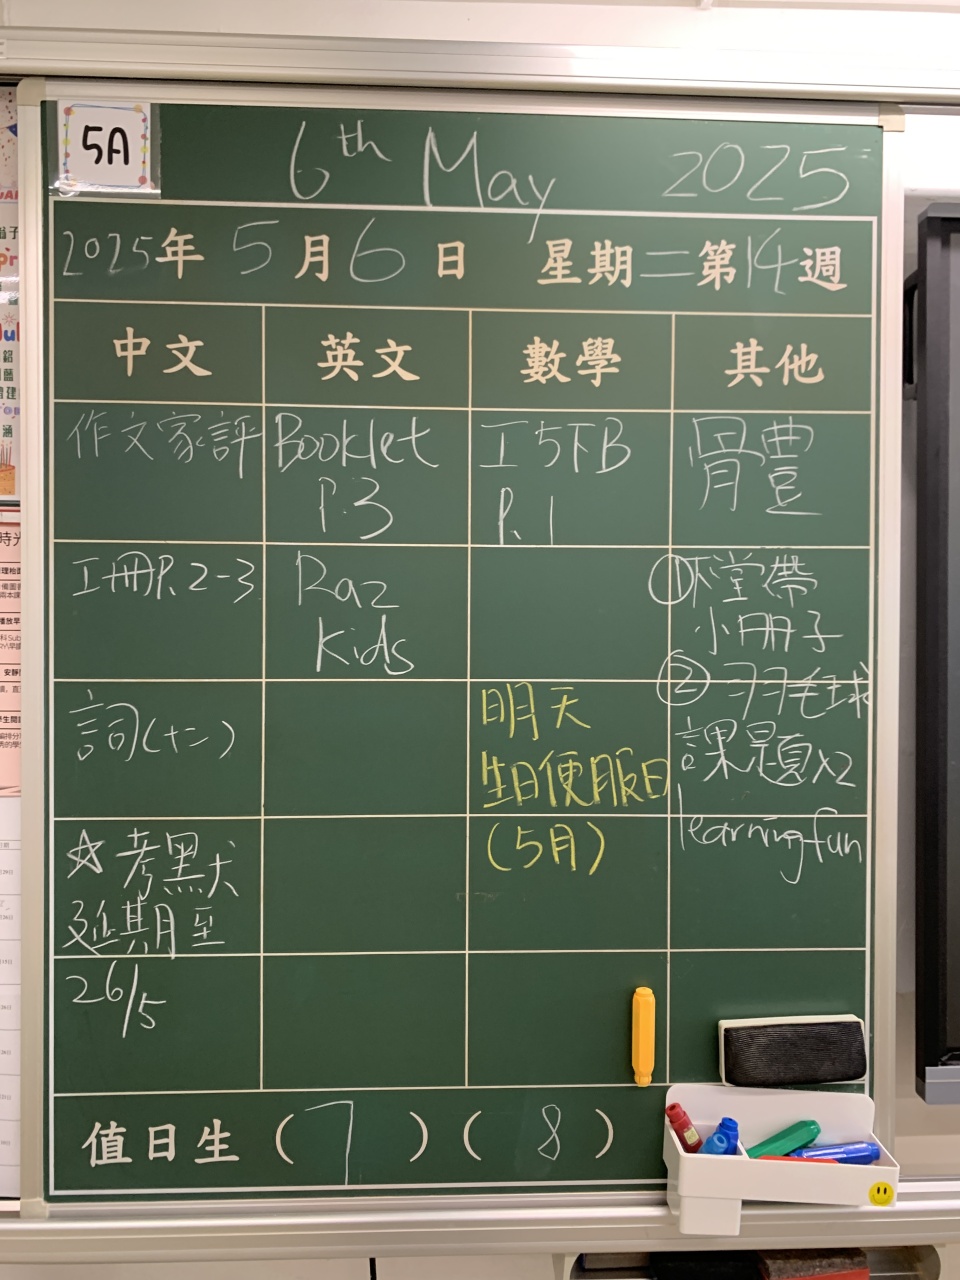 5A
6th May 2025
2025年5月6日 星期二 第14週
中文 英文 數學 其他
作文家評
工冊P.2-3
詞(十二)
☆考默
延期至
26/5
Booklet
P.3
Raz
Kids
工5下B
P.1
明天
生日便服日
(5月)
體
①下堂帶
小冊子
②羽毛球
課題x2
learning fun
值日生 (7) (8)